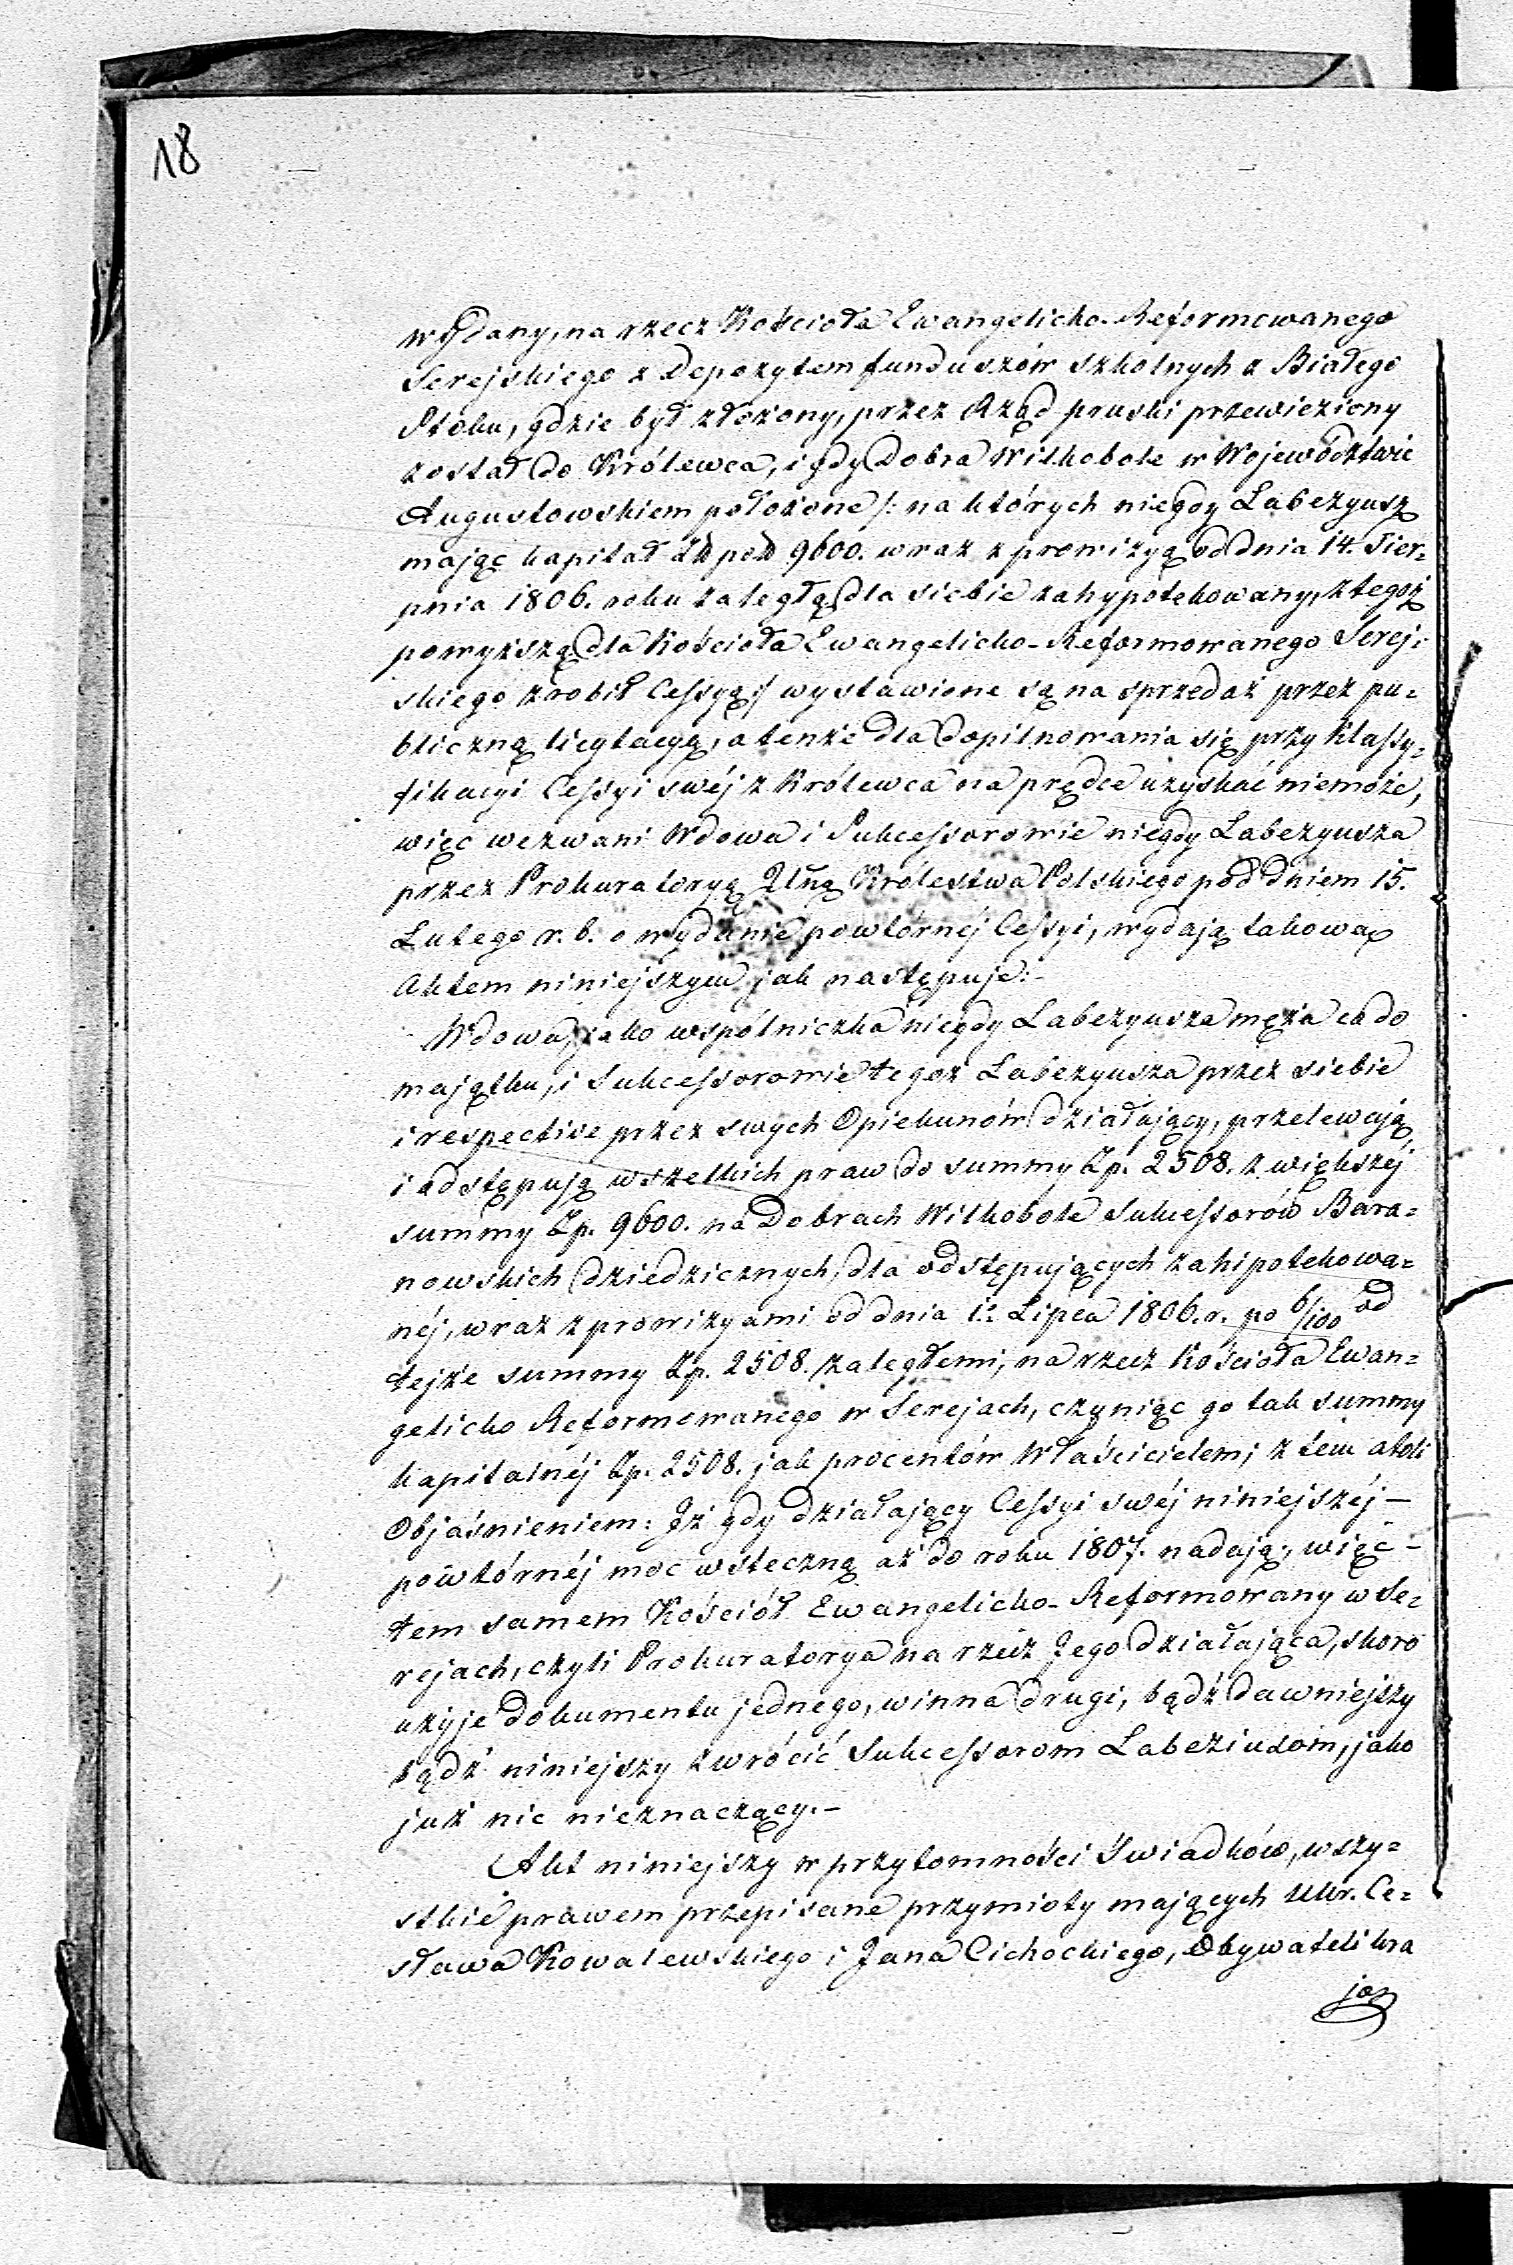 18
wydany, na rzecz Kościoła Ewangelicko-Reformowanego
Serejskiego z Depozytem funduszów szkolnych z Białego
Stoku, gdzie był złożony, przez Rząd pruski przewieziony
został do Królewca, i gdy Dobra Wilkobole w Wojewodztwie
Augustowskiem położone /: na których niegdy Labezyusz
mając kapitał Zł pol 9600. wraz z prowizyą od dnia 14. Sier-
pnia 1806. roku zaległą dla siebie zahypotekowany, z tegoż
powyższą dla Kościoła Ewangelicko-Reformowanego Serej-
skiego zrobił Cessyą :/ wystawione są na sprzedaż przez pu-
bliczną licytacyą, a tenże dla dopilnowania się przy klassy-
fikacyi Cessyi swéj z Królewca na prędce uzyskać niemoże,
więc wezwani Wdowa i Sukcessorowie niegdy Labezyusza
przez Prokuratoryą Jlną Królestwa Polskiego pod dniem 15.
Lutego r. b. o wydanie powtórnéj Cessyi, wydają takową
Aktem niniejszym jak następuje:-
Wdowa, jako wspólniczka niegdy Labezyusza męża co do
majątku, i Sukcessorowie tegoż Labezyusza przez siebie
i respective przez swych Opiekunów działający, przelewają
i odstępują wszelkich praw do summy Zp. 2508. z większéj
summy Zp. 9600. na Dobrach Wilkobole Sukcessorów Bara-
nowskich dziedzicznych dla odstępujących zahipotekowa-
néj, wraz z prowizyami od dnia 1. Lipca 1806. r. po 6/100 od
tejże summy Zp. 2508. zaległemi, na rzecz Kościoła Ewan-
gelicko Reformowanego w Serejach, czyniąc go tak summy
kapitalnéj Zp. 2508. jak procentów Właścicielem; z tem atoli
Objaśnieniem: Iż gdy działający Cessyi swéj niniejszéj —
powtórnéj moc wsteczną aż do roku 1807. nadają, więc —
tem samem Kościół Ewangelicko-Reformowany w Se-
rejach, czyli Prokuratorya na rzecz Jego działająca, skoro
użyje dokumentu jednego, winna drugi, bądź dawniejszy
bądź niniejszy zwrócić Sukcessorom Labeziusom, jako
już nic nieznaczący.-
Akt niniejszy w przytomności Świadków, wszy-
stkie prawem przepisane przymioty mających Ur. Ce-
sława Kowalewskiego i Jana Cichockiego, Obywateli kra
ju